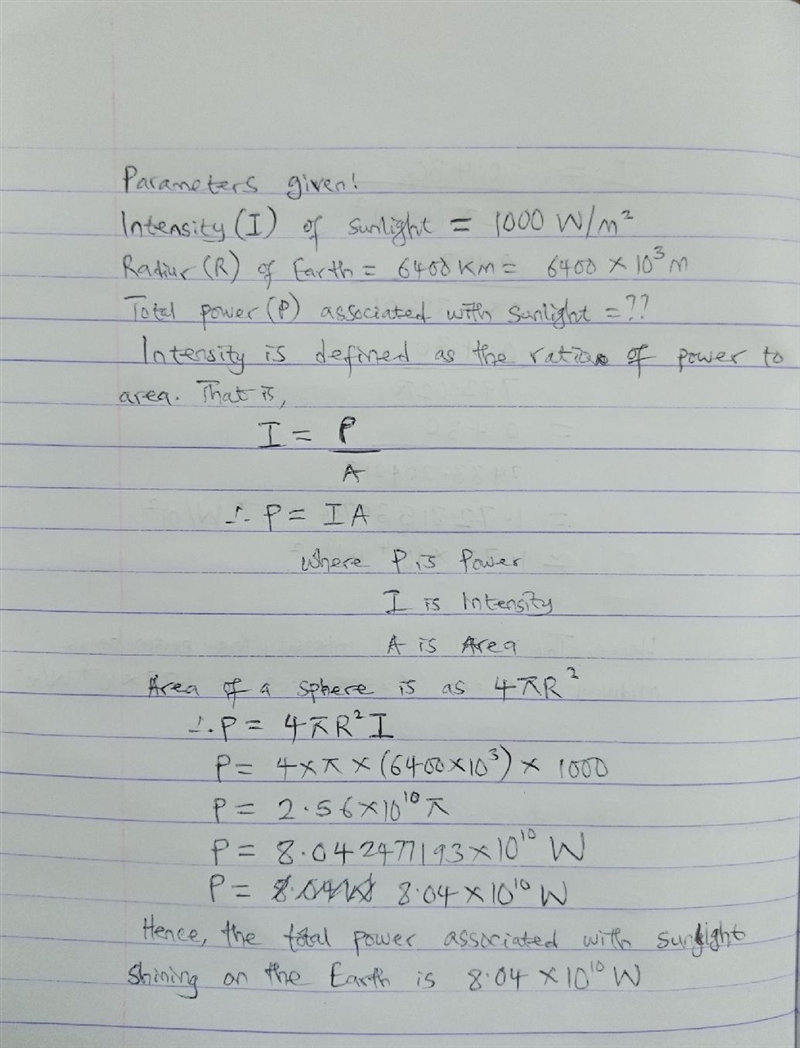 Parameters given!
Intensity (I) of sunlight = 1000 W/m²
Radius (R) of Earth = 6400 KM = 6400 × 10³ M
Total power (P) associated with sunlight = ??
Intensity is defined as the ratio of power to
area. That is,
I = P
A
∴ P = IA
where P is Power
I is Intensity
A is Area
Area of a sphere is as 4πR²
∴ P = 4πR²I
P = 4×π×(6400×10³)× 1000
P = 2.56×10¹⁰π
P = 8.042477193×10¹⁰ W
P = 8.04×10¹⁰ W
Hence, the total power associated with sunlight
shining on the Earth is 8.04 ×10¹⁰ W